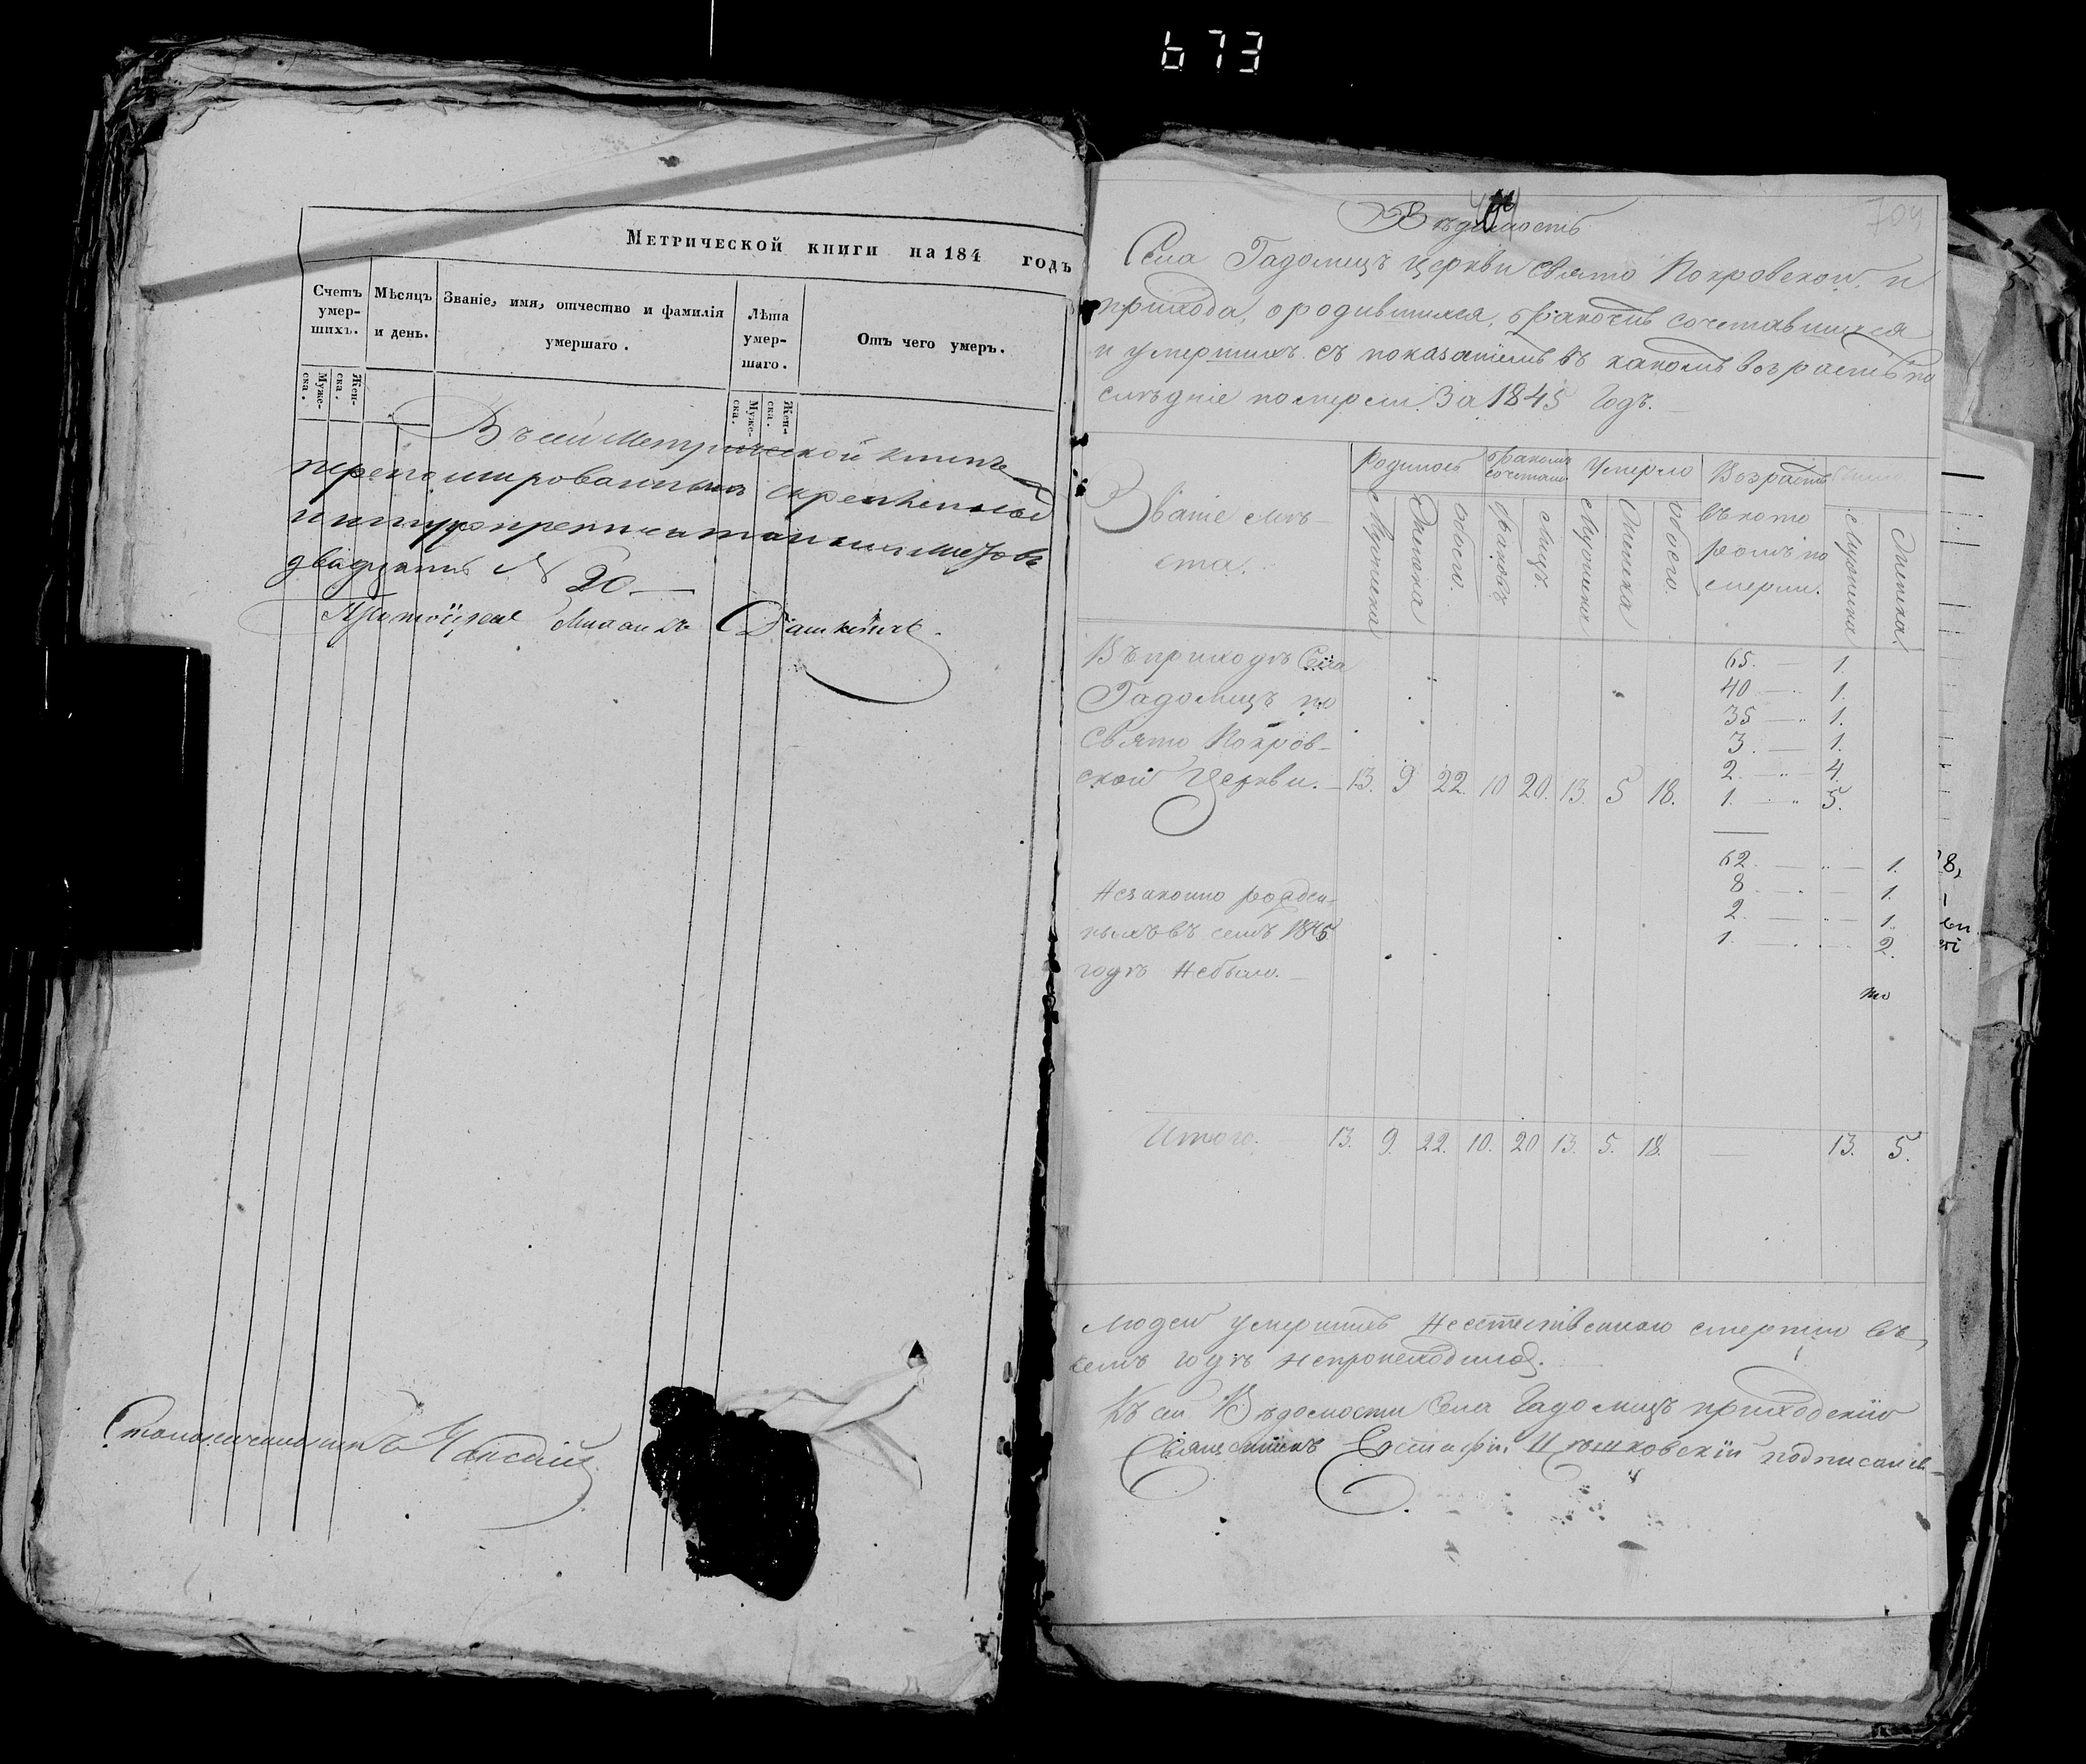 673
Метрической книги на 184 годъ
Счетъ умер- шихъ.
Мѣсяцъ и день.
Званіе, имя, отчество и фамилія умершаго.
Лѣта умер- шаго.
Отъ чего умеръ.
Муже- ска.
Жен- ска.
Муже- ска.
Жен- ска.
Въ сей Метрической книгѣ
двадцать № 20
Протоіерей
Столоначальникъ
704
Вѣдомость
Села Гадомецъ церкви Свято Покровской, и
прихода, о родившихся, бракомъ сочетавшихся
и умершихъ съ показаніемъ въ какомъ возрастѣ по
слѣдніе померли. За 1845 Годъ.
Званіе мѣ-
ста.
Родилось
Бракомъ сочетан.
Умерло
Возрастъ
въ кото
ромъ по
мерли.
Мужеска
Женска
Обоего.
Браковъ
Лицъ.
Мужеска
Женска
Обоего.
Мужеска
Женска
Въ приходѣ Села
Гадомецъ по
Свято Покров-
ской Церкви. 13. 9 22. 10 20. 13. 5 18.
65. 1.
40 1.
35 1.
3. 1.
2. 4.
1. 5.
62. 1.
8 1.
2 1.
1. 2.
Незаконно рожден-
ныхъ въ семъ 1845
годѣ Небыло.
Итого. 13. 9. 22. 10. 20 13. 5. 18. 13. 5.
Людей умершихъ Неестественною смертію въ
семъ годѣ непроисходило.
Къ сей Вѣдомости Села Гадомецъ приходскій
Священникъ подписался